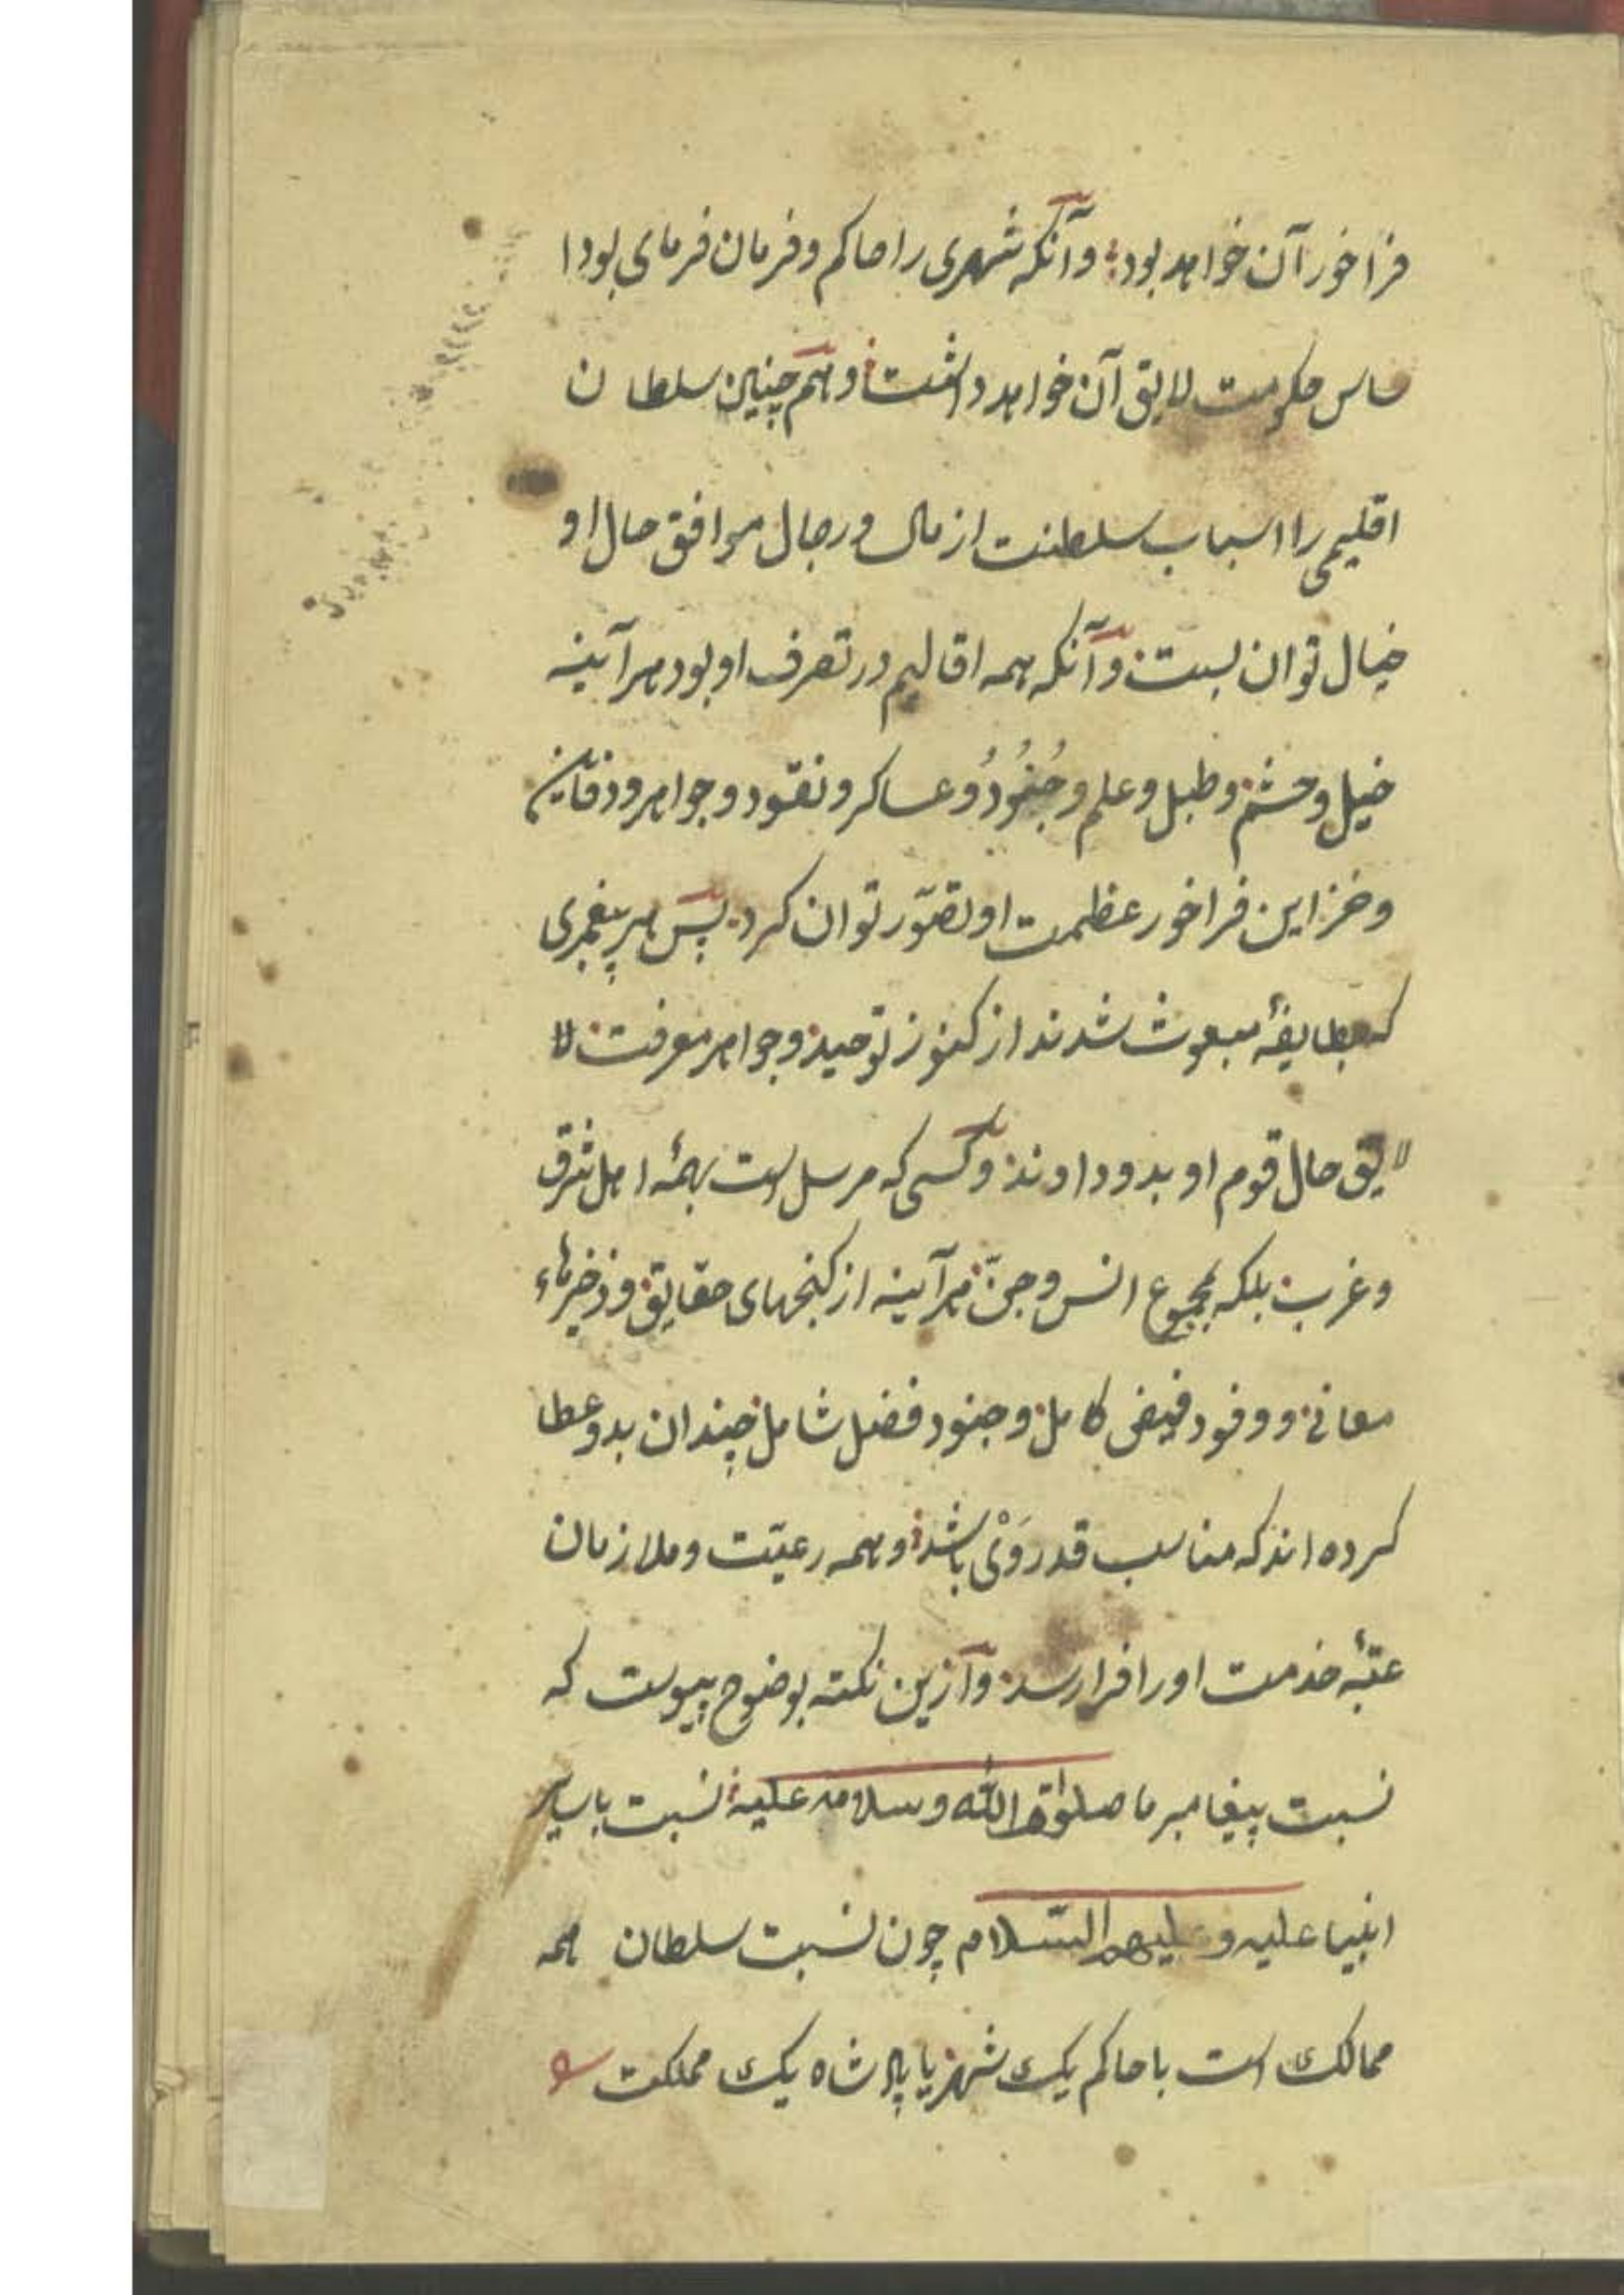 فراخور آن خواهد بود؛ و آنکه شهری را حاکم و فرمان فرمای بود ا
ساس حکومت لایق آن خواهد داشت و هم چنین سلطان
اقلیمی را اسباب سلطنت از مال و رجال موافق حال او
خیال توان بست و آنکه همه اقالیم در تصرف او بود هرآینه
خیل و حشم و طبل و علم و جُنُودُ و عساکر و نقود و جواهر و دفاین
و خزاین فراخور عظمت او تصوّر توان کرد. پس هر پیغمبری
که بطایفهٔ مبعوث شدند از کنوز توحید و جواهر معرفت لا
لایق حال قوم او بدو دادند و کسی که مرسل است بهمهٔ اهل شرق
و غرب بلکه بمجموع انس و جنّ هرآینه از کنجهای حقایق و ذخیرهاء
معانی و وفود فیض کامل و جنود فضل شامل چندان بدو عطا
کرده اند که مناسب قدر وَیْ باشد و همه رعیّت و ملازمان
عتبهٔ خدمت او را فرا رسد و ازین نکته بوضوح پیوست که
نسبت پیغامبر ما صلوة الله و سلامه علیه نسبت با سایر
انبیا علیه و علیهم السّلام چون نسبت سلطان همه
ممالک است با حاکم یک شهر یا پادشاه یک مملکت